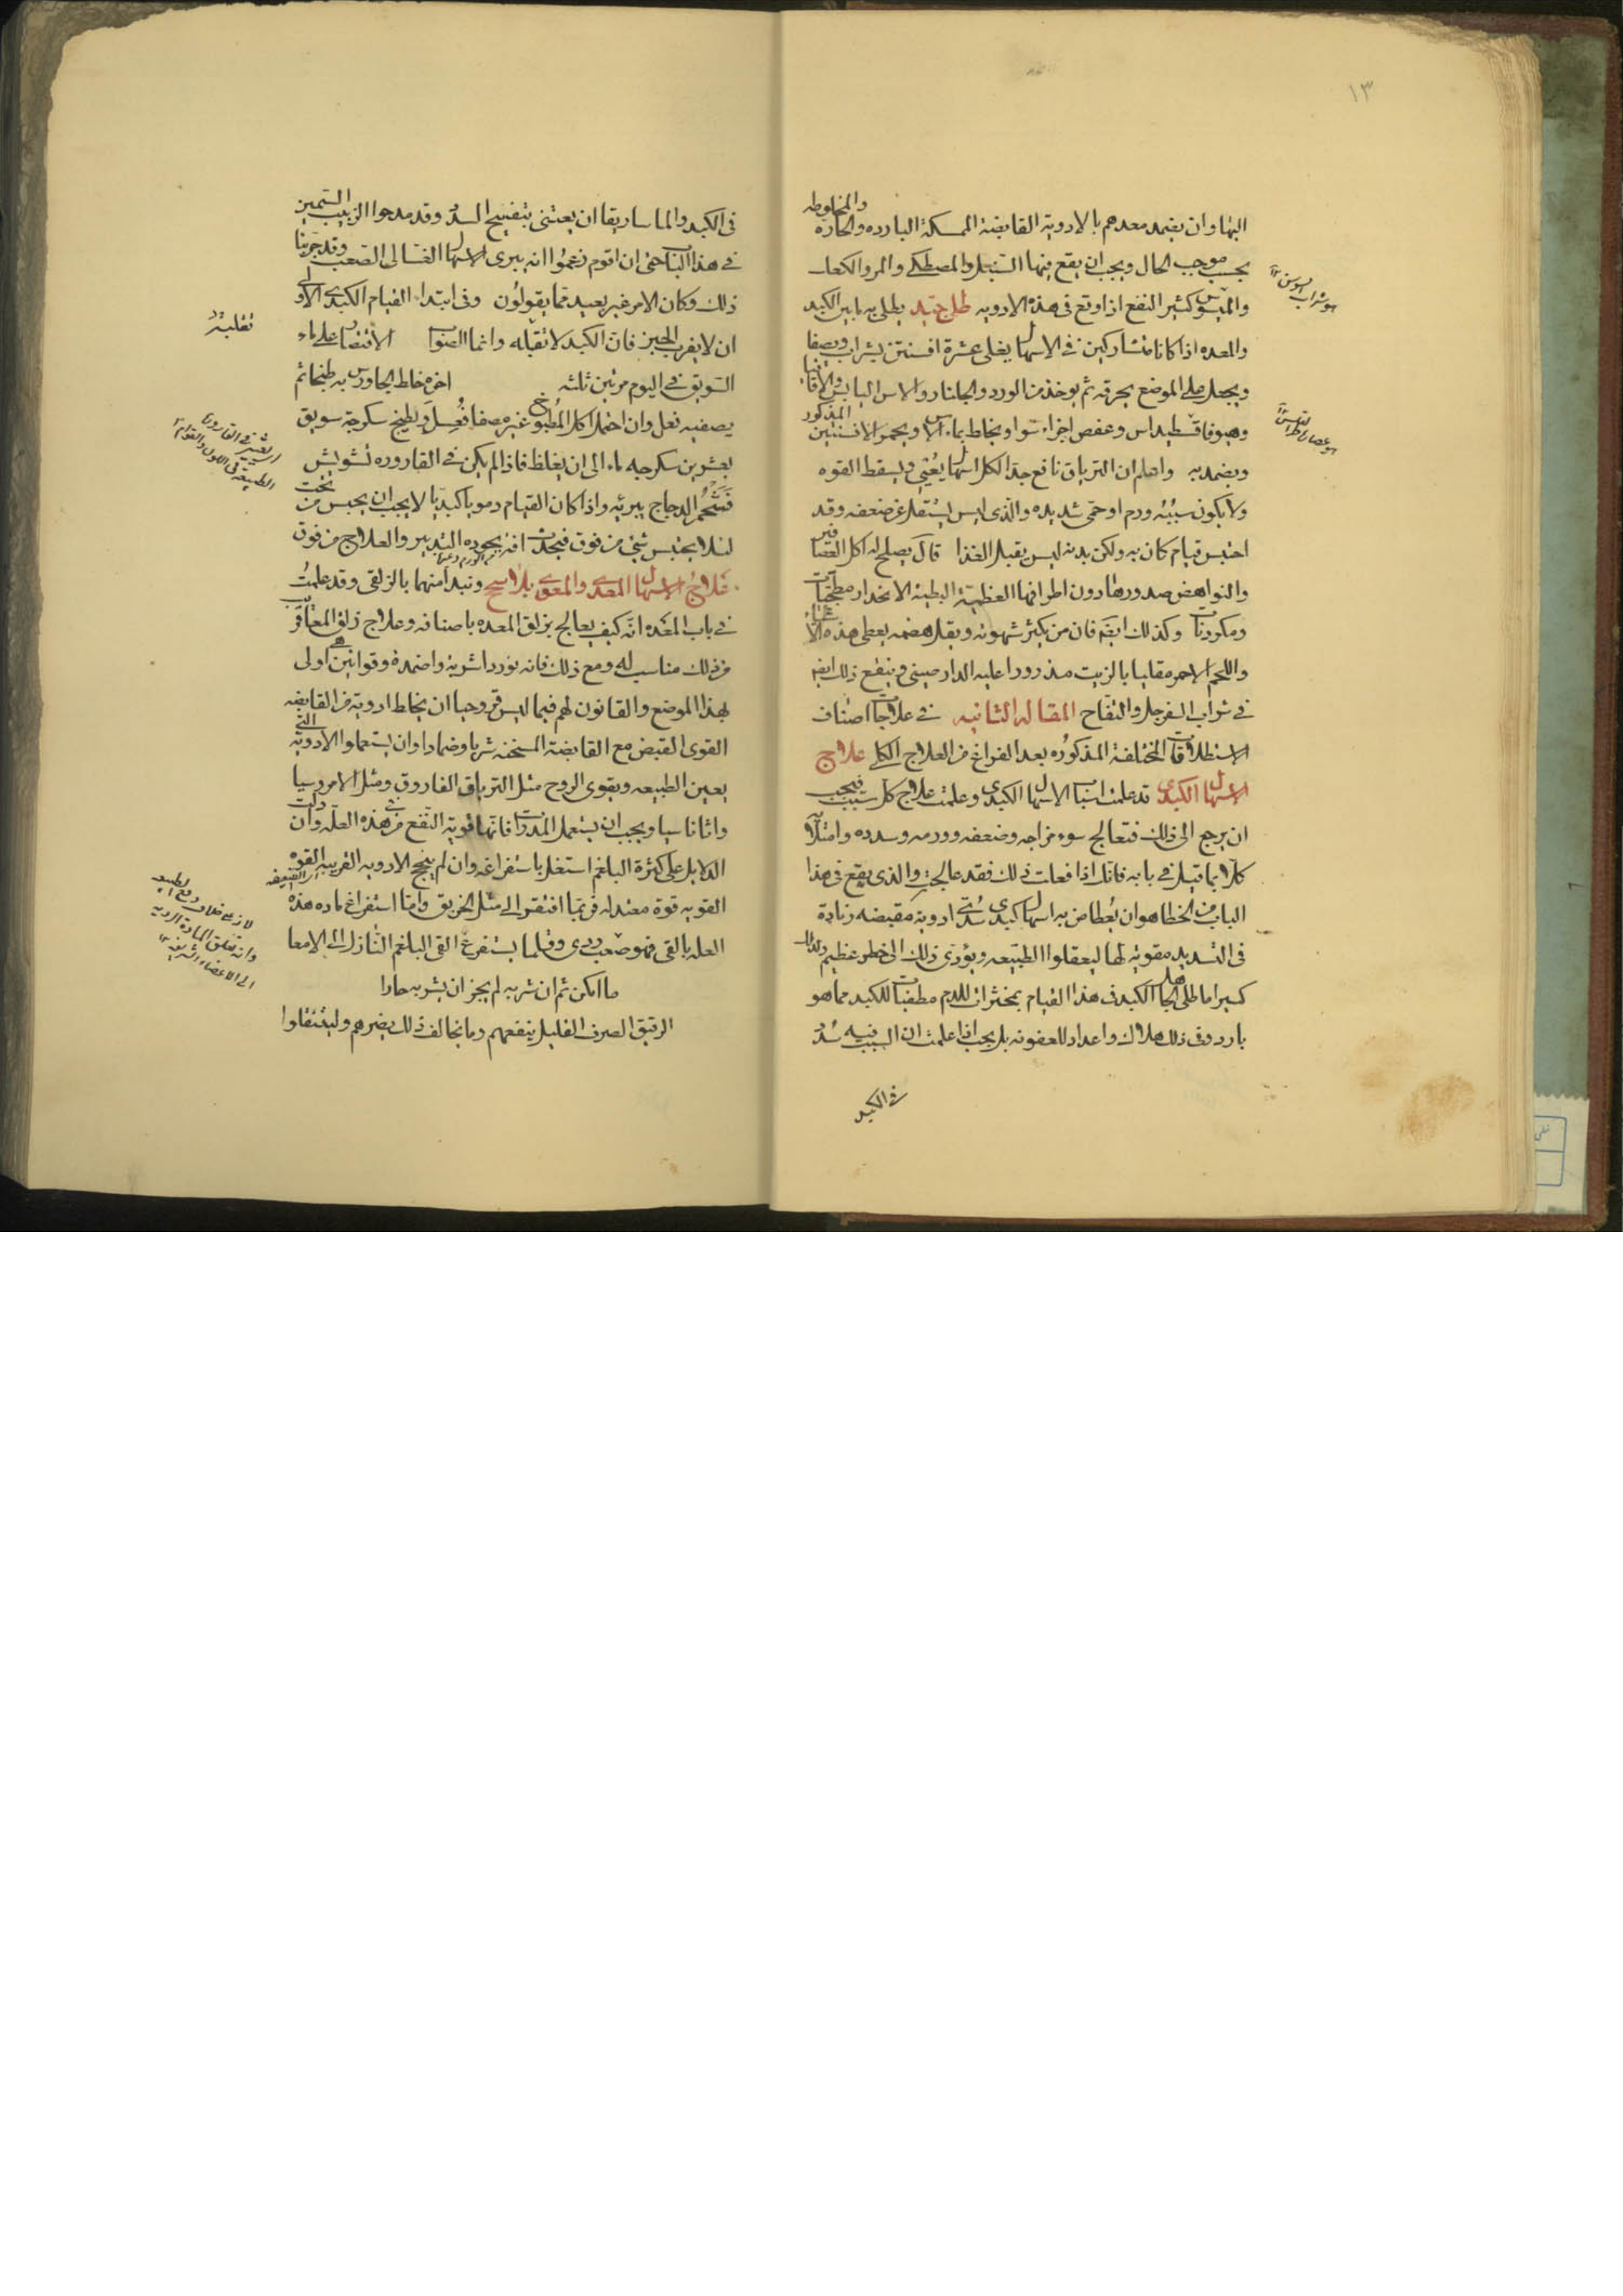 ١٣
والمخلوطه
اليها وان يضمد معدهم بالادوية القابضة الممسكة البارده والحاره
بحسب موجب الحال ويجب ان يقع فيها السنبل والمصطكي والمر والكعك
والميسو كثير النفع اذا وقع في هذه الادويه طلا جيد يطلى به مابين الكبد
هو شراب السوسن
والمعده اذا كانا متشاركين في الاسهال يغلى عشرة افسنتين بشراب ويصفا
ويجعل على الموضع بخرقه ثم يوخذ من الورد والجلنار والاس اليابس والاقاقيا
وهيوفاقسطيداس وعفص اجزاء سوا ويخلط بماء الاس وبخمر الافسنتين المذكور
ويضمد به واعلم ان الترياق نافع جدا لكل اسهال يعيي ويسقط القوه
ولا يكون سببه ورم او حمى شديده والذي ليس يستقل عن ضعفه وقد
احتبس قيام كان به ولكن بدنه ليس يقبل الغذا قال يصلح له اكل العصافير
والنواهض صدورها دون اطرافها العظيمة البطية الانحدار مطجنات
ومكردنات وكذلك ايضه فان من يكثر شهوته ويقل هضمه يعطى هذه الاغذية
واللحم الاحمر مقليا بالزيت مذرورا عليه الدارصيني وينفع ذلك ايضه
في شراب السفرجل والتفاح المقاله الثانيه في علاجات اصناف
الاستطلاقات المختلفة المذكوره بعد الفراغ من العلاج الكلي علاج
الاسهال الكبدي قد علمت اسباب الاسهال الكبدي وعلمت علاج كل سبب فيجب
ان يرجع الى ذلك فتعالج سوء مزاجه وضعفه وورمه وسدده وامتلائه
كلا بما قيل في بابه فانك اذا فعلت ذلك فقد عالجت والذي يقع في هذا
الباب من الخطا هو ان يعطا من به اسهال كبدي سددي ادوية مقبضه زيادة
في التسديد مقويه لها ليعقلوا الطبيعه ويؤدى ذلك الى خطر عظيم وكذلك
كسيرا ما طلى الجهال الكبد في هذا القيام بمخثرات للدم مطفيات للكبد مما هو
بارد وفي ذلك هلاك واعداد للعفونه بل يجب اذا علمت ان السبب فيه سدد
في الكبد
في الكبد والماساريقا ان يعتنى بتفتيح السدد وقد مدحوا الزبيب السمين
في هذا الباب حتى ان اقوم زعموا انه يبرى الاسهال الغسالي الصعب وقد جربنا
ذلك وكان الامر غير بعيد مما يقولون وفي ابتداء القيام الكبدي الاولى
ان لا يقرب الجبن فان الكبد لا تقبله وانما الصواب الاقتصار على ماء
السويق في اليوم مرتين ثلثه اخره خلط الجاورس به طبخا ثم
يصفيه فعل وان احتمل اكل المطبوخ غيره مصفا فعل ويطبخ سكرجة سويق
بعشرين سكرجه ماء الى ان يغلظ فاذا لم يكن في القاروره تشويش
فشحم الدجاج يبرئه واذا كان القيام دمويا كبديا لا يجب ان يحبس من تحت
لئلا يحتبس شئ من فوق فيحدث افه بجوده التدبير والعلاج من فوق
علاج الاسهال المعدي والمعوي بلا سحج ونبدأ منهما بالزلقي وقد علمت
في باب المعده انه كيف يعالج بزلق المعده باصنافه وعلاج زلق المعا قريب
من ذلك مناسب له ومع ذلك فانه نورد اشربة واضمدة وقوانين هي اولى
بهذا الموضع والقانون لهم فيما ليس قروحيا ان يخلط ادوية من القابضه
القوى القبض مع القابضة المسخنه شربا وضمادا وان يستعملوا الادوية التي
يعين الطبيعه ويقوى الروح مثل الترياق الفاروق ومثل الامروسيا
واثاناسيا ويجب ان يستعمل المدرات فانها قوية النفع في هذه العلة وان دلت
الدلايل على كثرة البلغم استغل باستفراغه وان لم ينجع الادويه القريبه القوه
القويه قوة معتدله فربما افتقر الى مثل الخربق واما استفراغ ماده هذه
العله بالقي فهو صعب ردى وقلما يستفرغ القي البلغم النازل الى الامعا
ما امكن ثم ان شربه لم يجز ان يشربه حارا
الرقيق الصرف القليل ينفعهم وما يخالف ذلك يضرهم وليتنقلوا